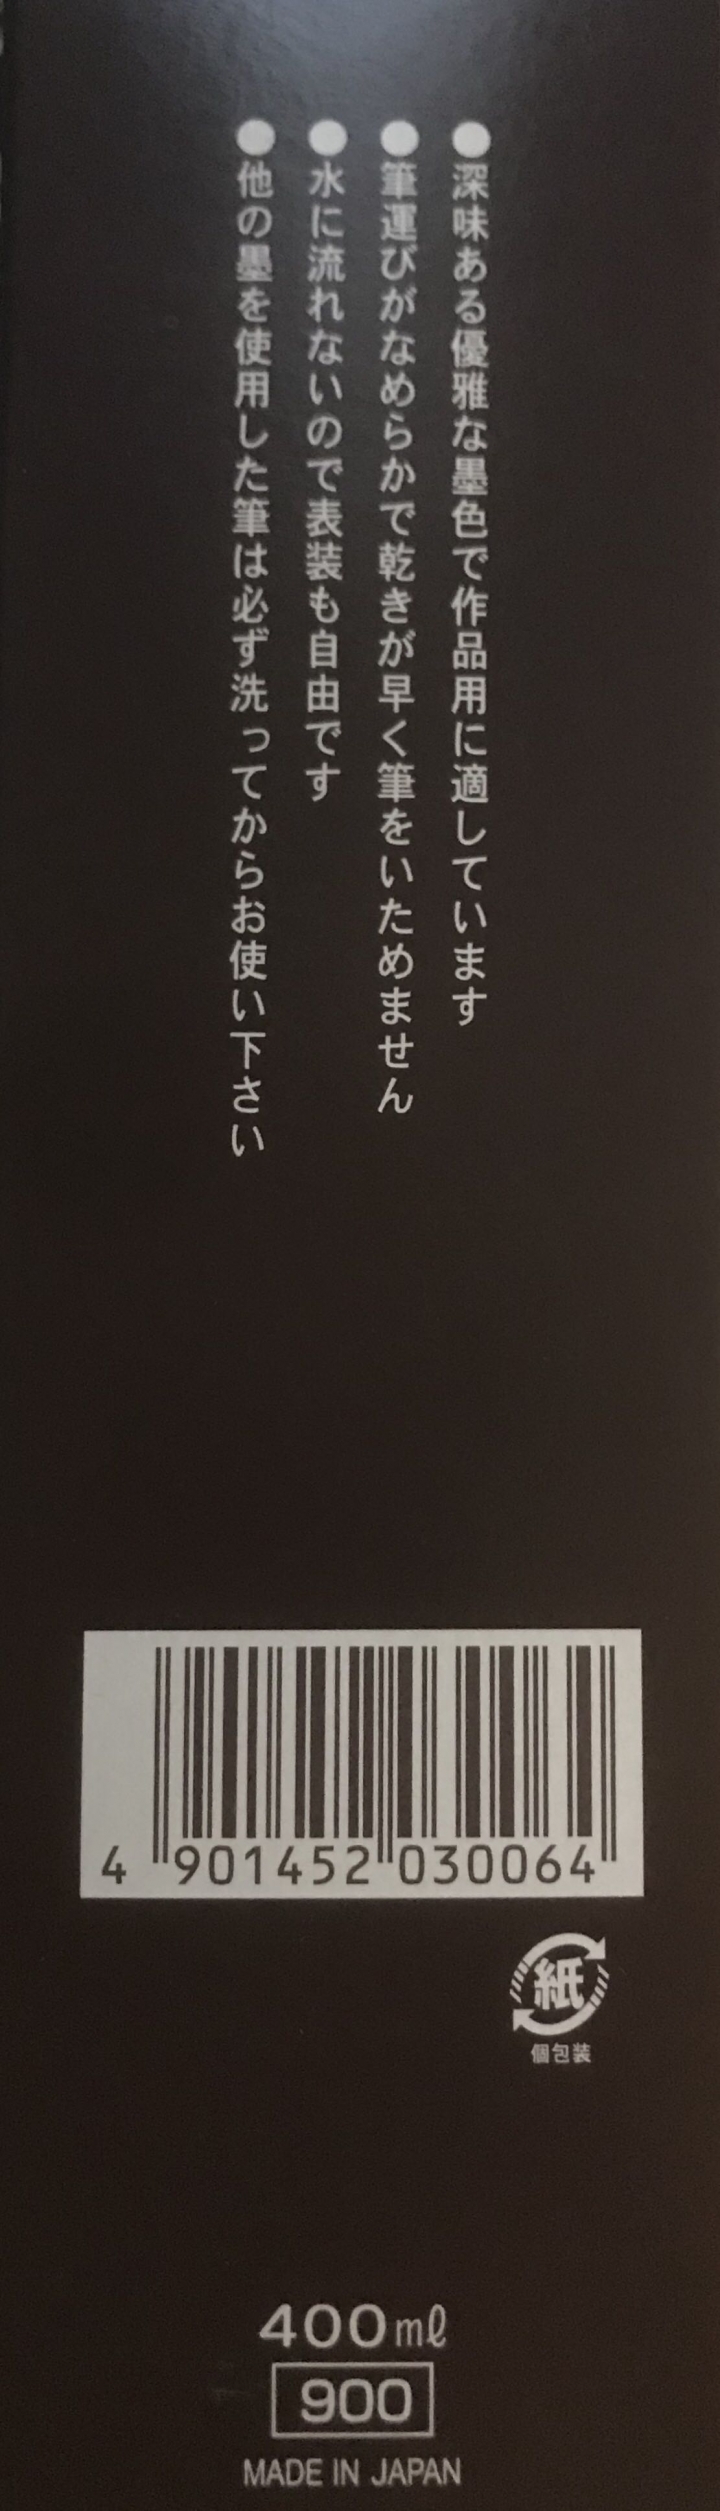 ●深味ある優雅な墨色で作品用に適しています
●筆運びがなめらかで乾きが早く筆をいためません
●水に流れないので表装も自由です
●他の墨を使用した筆は必ず洗ってからお使い下さい
4 901452 030064
紙
個包装
400ml
900
MADE IN JAPAN